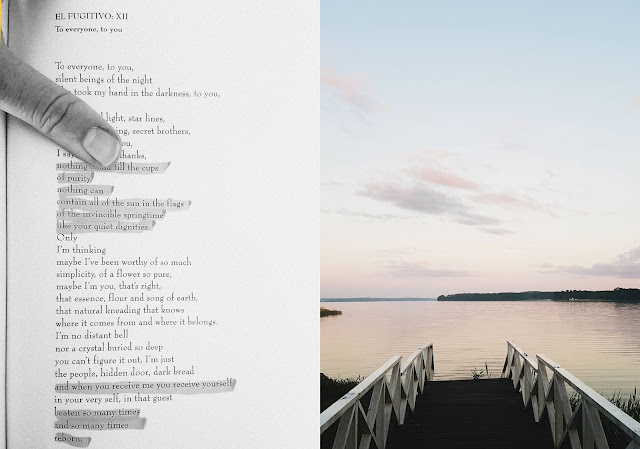 EL FUGITIVO: XII
To everyone, to you
To everyone, to you,
silent beings of the night
took my hand in the darkness, to you,
light, star lines,
secret brothers,
I say thanks,
nothing fill the cups
of purity,
nothing can
contain all of the sun in the flags
of the invincible springtime
like your quiet dignities.
Only
I'm thinking
maybe I've been worthy of so much
simplicity, of a flower so pure,
maybe I'm you, that's right,
that essence, flour and song of earth,
that natural kneading that knows
where it comes from and where it belongs.
I'm no distant bell
nor a crystal buried so deep
you can't figure it out, I'm just
the people, hidden door, dark bread
and when you receive me you receive yourself
in your very self, in that guest
beaten so many times
and so many times
reborn.